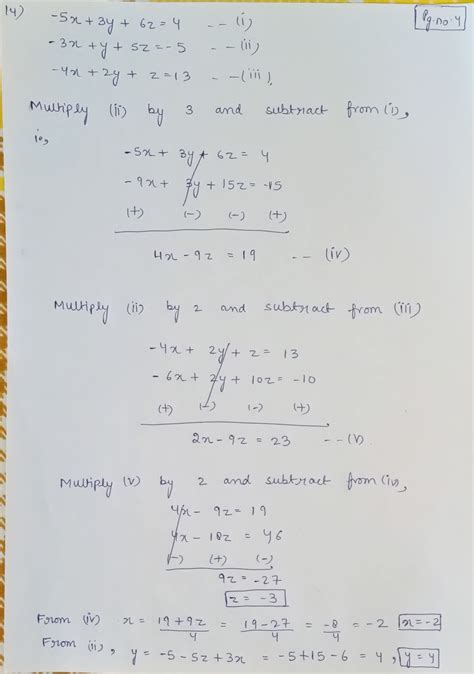 14) -5x + 3y + 6z = 4 -- (i)
Pg.no.4
-3x + y + 5z = -5 -- (ii)
-4x + 2y + z = 13 -- (iii)
Multiply (ii) by 3 and subtract from (i),
ie,
-5x + 3y + 6z = 4
-9x + 3y + 15z = -15
(+) (-) (-) (+)
4x - 9z = 19 -- (iv)
Multiply (ii) by 2 and subtract from (iii)
-4x + 2y + z = 13
-6x + 2y + 10z = -10
(+) (-) (-) (+)
2x - 9z = 23 -- (v)
Multiply (v) by 2 and subtract from (iv),
4x - 9z = 19
4x - 18z = 46
(-) (+) (-)
9z = -27
z = -3
From (iv) x = 19+9z/4 = 19-27/4 = -8/4 = -2 x=-2
From (ii), y = -5-5z+3x = -5+15-6 = 4, y=4